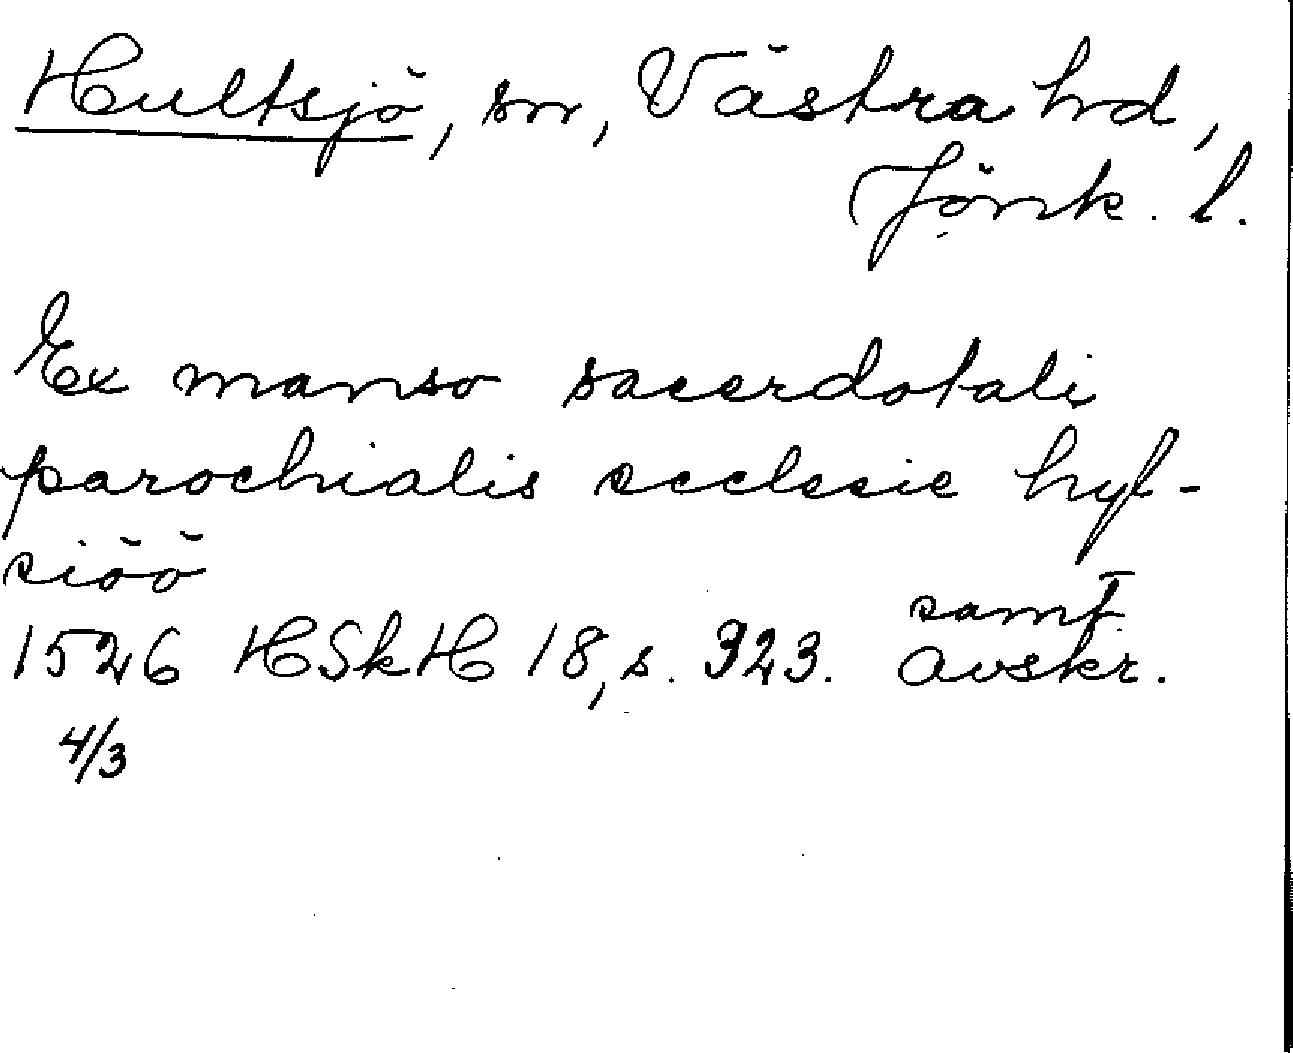 Hultsjö, sn, Västra hd,
Jönk. l.
Ex manso sacerdotali
parochialis ecclesie hyl-
siöö
samt.
1526 HSkH 18, s. 323. avskr.
4/3